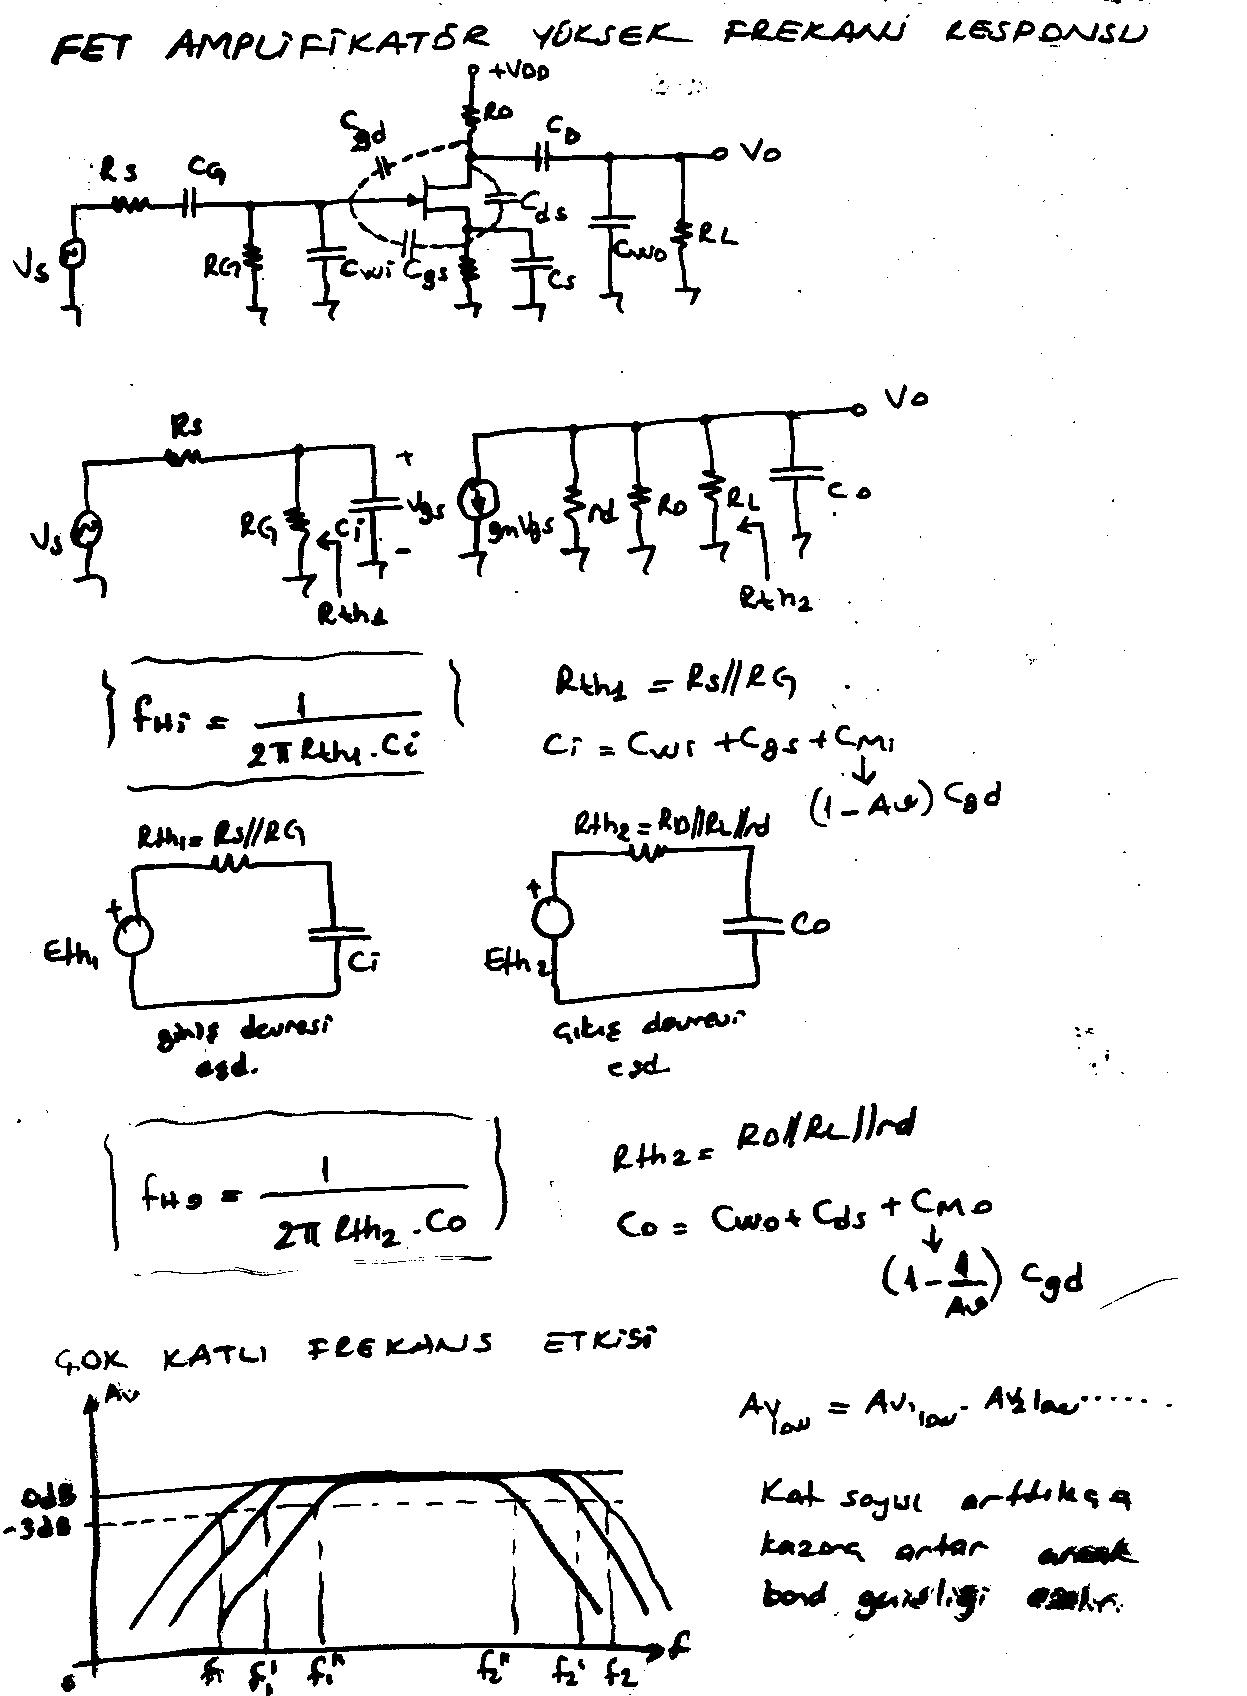 FET AMPLİFİKATÖR YÜKSEK FREKANS RESPONSU
+VDD
RD
Cgd
CD
Vo
Rs
CG
Cds
Vs
RG
Cwi
Cgs
Cs
Cwo
RL
Vo
Rs
Vs
RG
Ci
+
Vgs
-
gmVgs
rd
RD
RL
Co
Rth1
Rth2
fHi = 1 / 2π Rth1 . Ci
Rth1 = Rs//RG
Ci = Cwi + Cgs + CMi
(1 - Av) Cgd
Rth1 = Rs//RG
Rth2 = RD//RL//rd
+
Eth1
Ci
+
Eth2
Co
giriş devresi
eşd.
çıkış devresi
eşd.
fHo = 1 / 2π Rth2 . Co
Rth2 = RD//RL//rd
Co = Cwo + Cds + CMo
(1 - 1/Av) Cgd
ÇOK KATLI FREKANS ETKİSİ
Av
0dB
-3dB
0
f1 f1' f1" f2" f2' f2 f
Avlow = Av1low . Av2low ......
Kat sayısı arttıkça
kazanç artar ancak
band genişliği azalır.